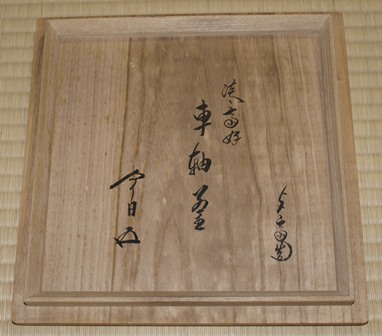 淡々斎好
車軸釜
今日庵